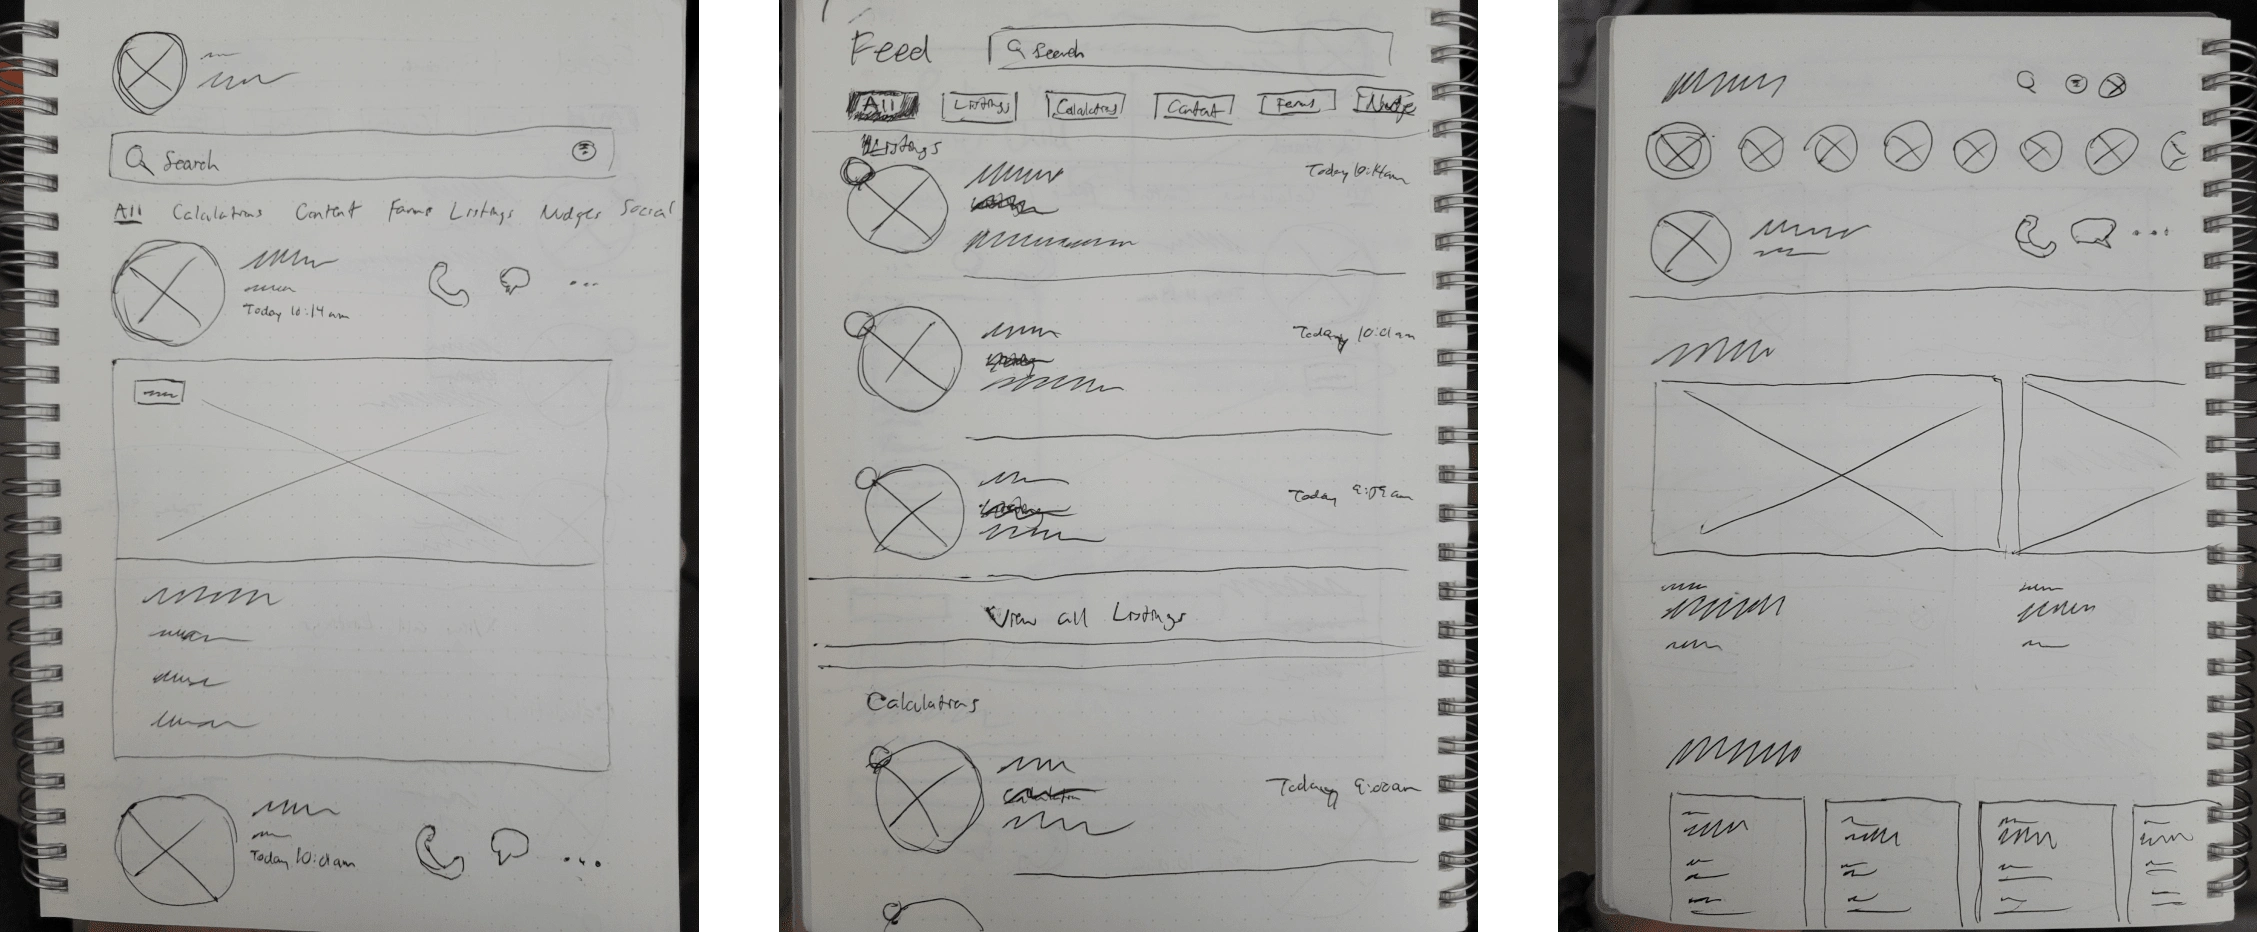 Search
All Calculations Content Forms Listings Nudges Social
Today 10:14am
Today 10:01am
Feed
Search
All Listings Calculations Content Forms Nudge
Listings
Today 10:14am
Today 10:01am
Today 9:09am
View all Listings
Calculations
Today 9:00am